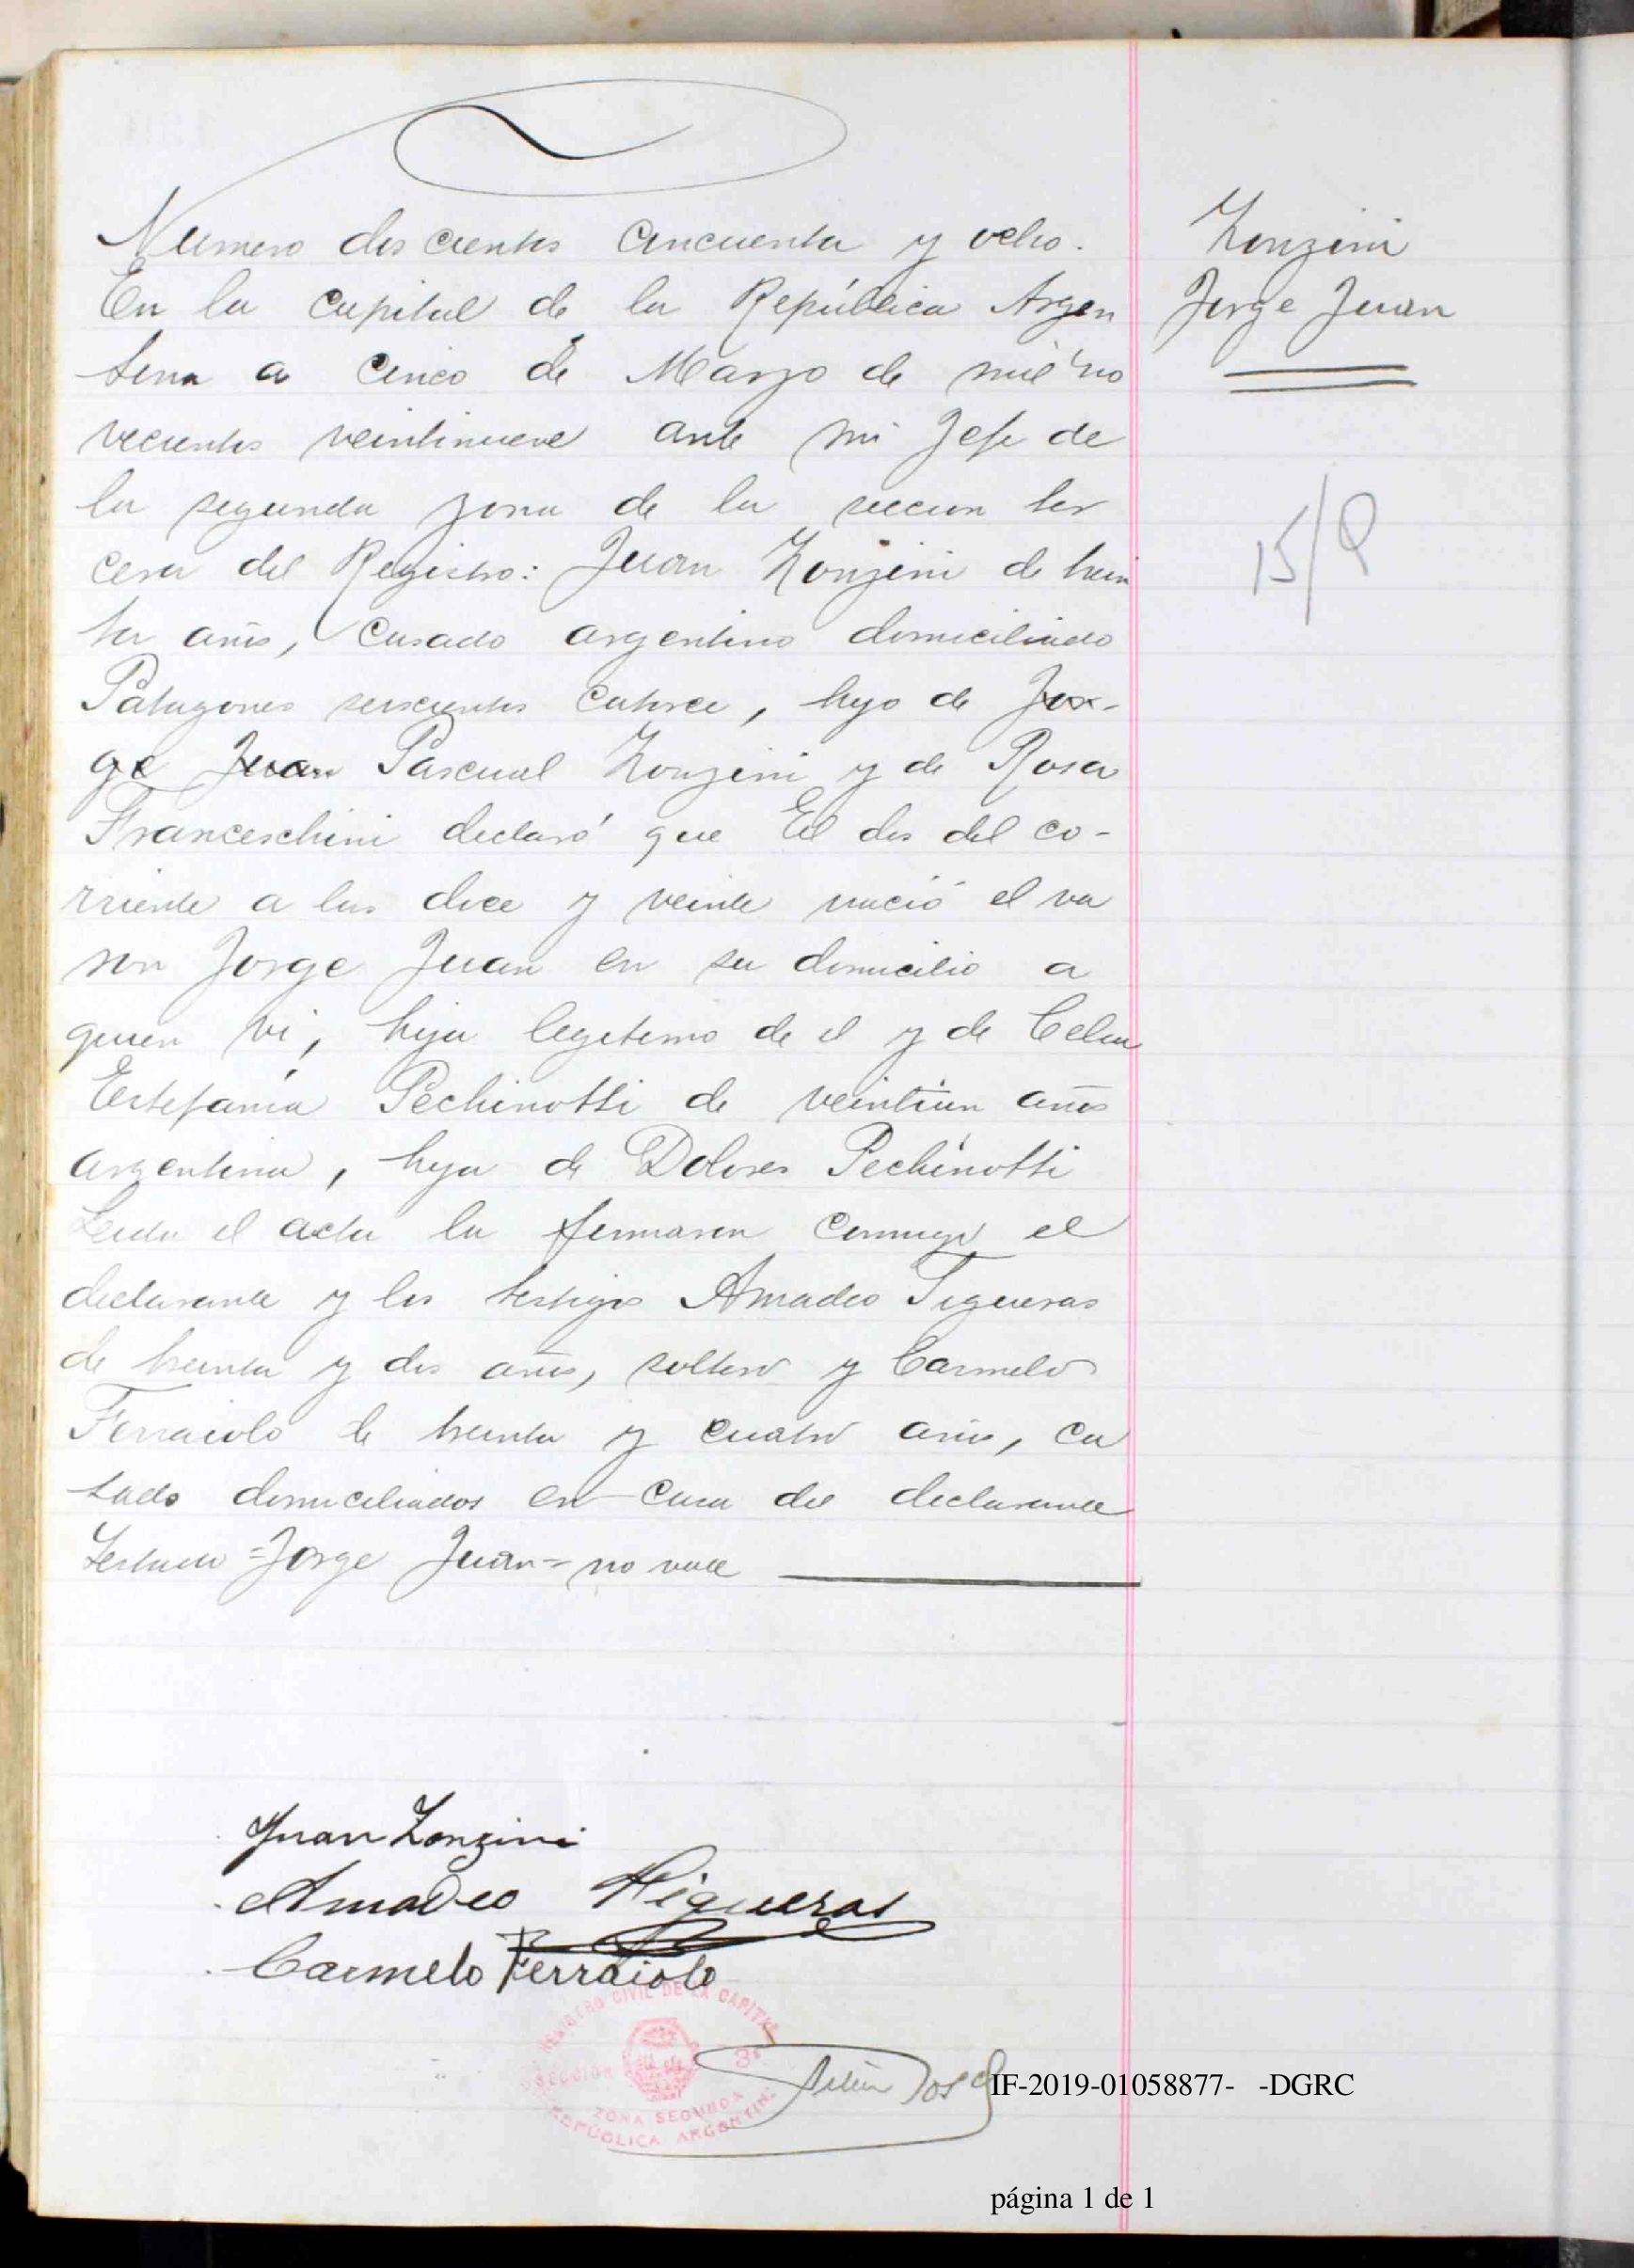 Numero doscientos cincuenta y ocho.
En la Capital de la República Argen
tina a cinco de Marzo de mil no
vecientos veintinueve ante mi Jefe de
la segunda zona de la seccion ter
cera del Registro: Juan Zonzini de trein
ta años, casado argentino domiciliado
Patagones seiscientos catorce, hijo de Jor-
ge Juan Pascual Zonzini y de Rosa
Franceschini declaró que El dos del co-
rriente a las doce y veinte nació el va
ron Jorge Juan en su domicilio a
quien vi, hijo legitimo de el y de Celia
Estefania Pechinotti de veintiun años
argentina, hija de Dolores Pechinotti
Leida el acta la firmaron conmigo el
declarante y los testigos Amadeo Figueras
de treinta y dos años, soltero y Carmelo
Ferraiolo de treinta y cuatro años, ca
sado domiciliados en casa del declarante
Testado =Jorge Juan= no vale
Zonzini
Jorge Juan
Juan Zonzini
Amadeo Higueras
Carmelo Ferraiolo
REGISTRO CIVIL DE LA CAPITAL
SECCION 3ª
ZONA SEGUNDA
REPÚBLICA ARGENTINA
IF-2019-01058877- -DGRC
página 1 de 1